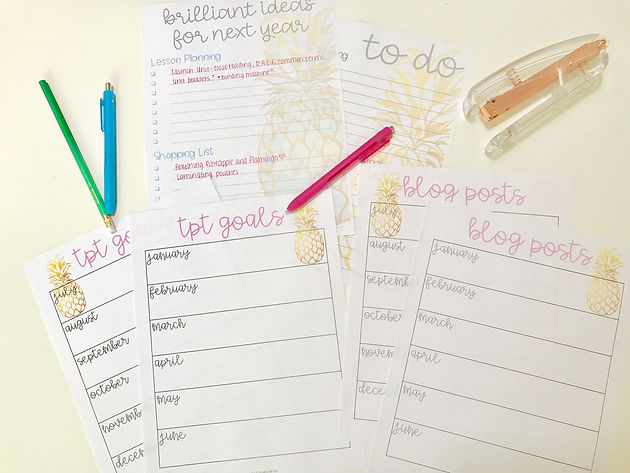 brilliant ideas
for next year
Lesson Planning
Launch Unit- close reading, R.A.C.E, common terms
Unit booklets? → binding machine
Shopping List
Anything Pineapple and Flamingo♡
Laminating pouches
to do
tpt go
july
august
september
october
novembe
decem
tpt goals
january
february
march
april
may
june
blog posts
july
august
septemb
octobe
novem
dece
blog posts
january
february
march
april
may
june